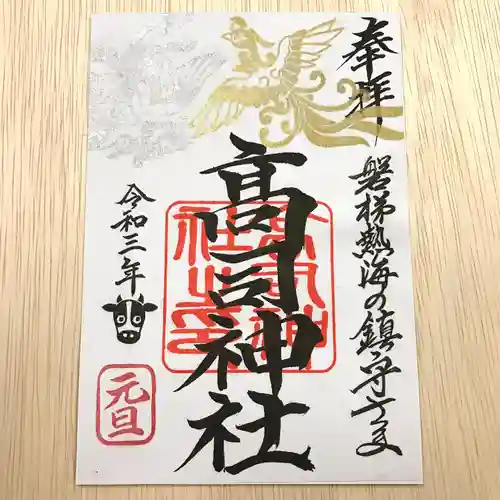 奉拝
磐梯熱海の鎮守さま
髙司神社
高司神社之印
令和三年
元旦